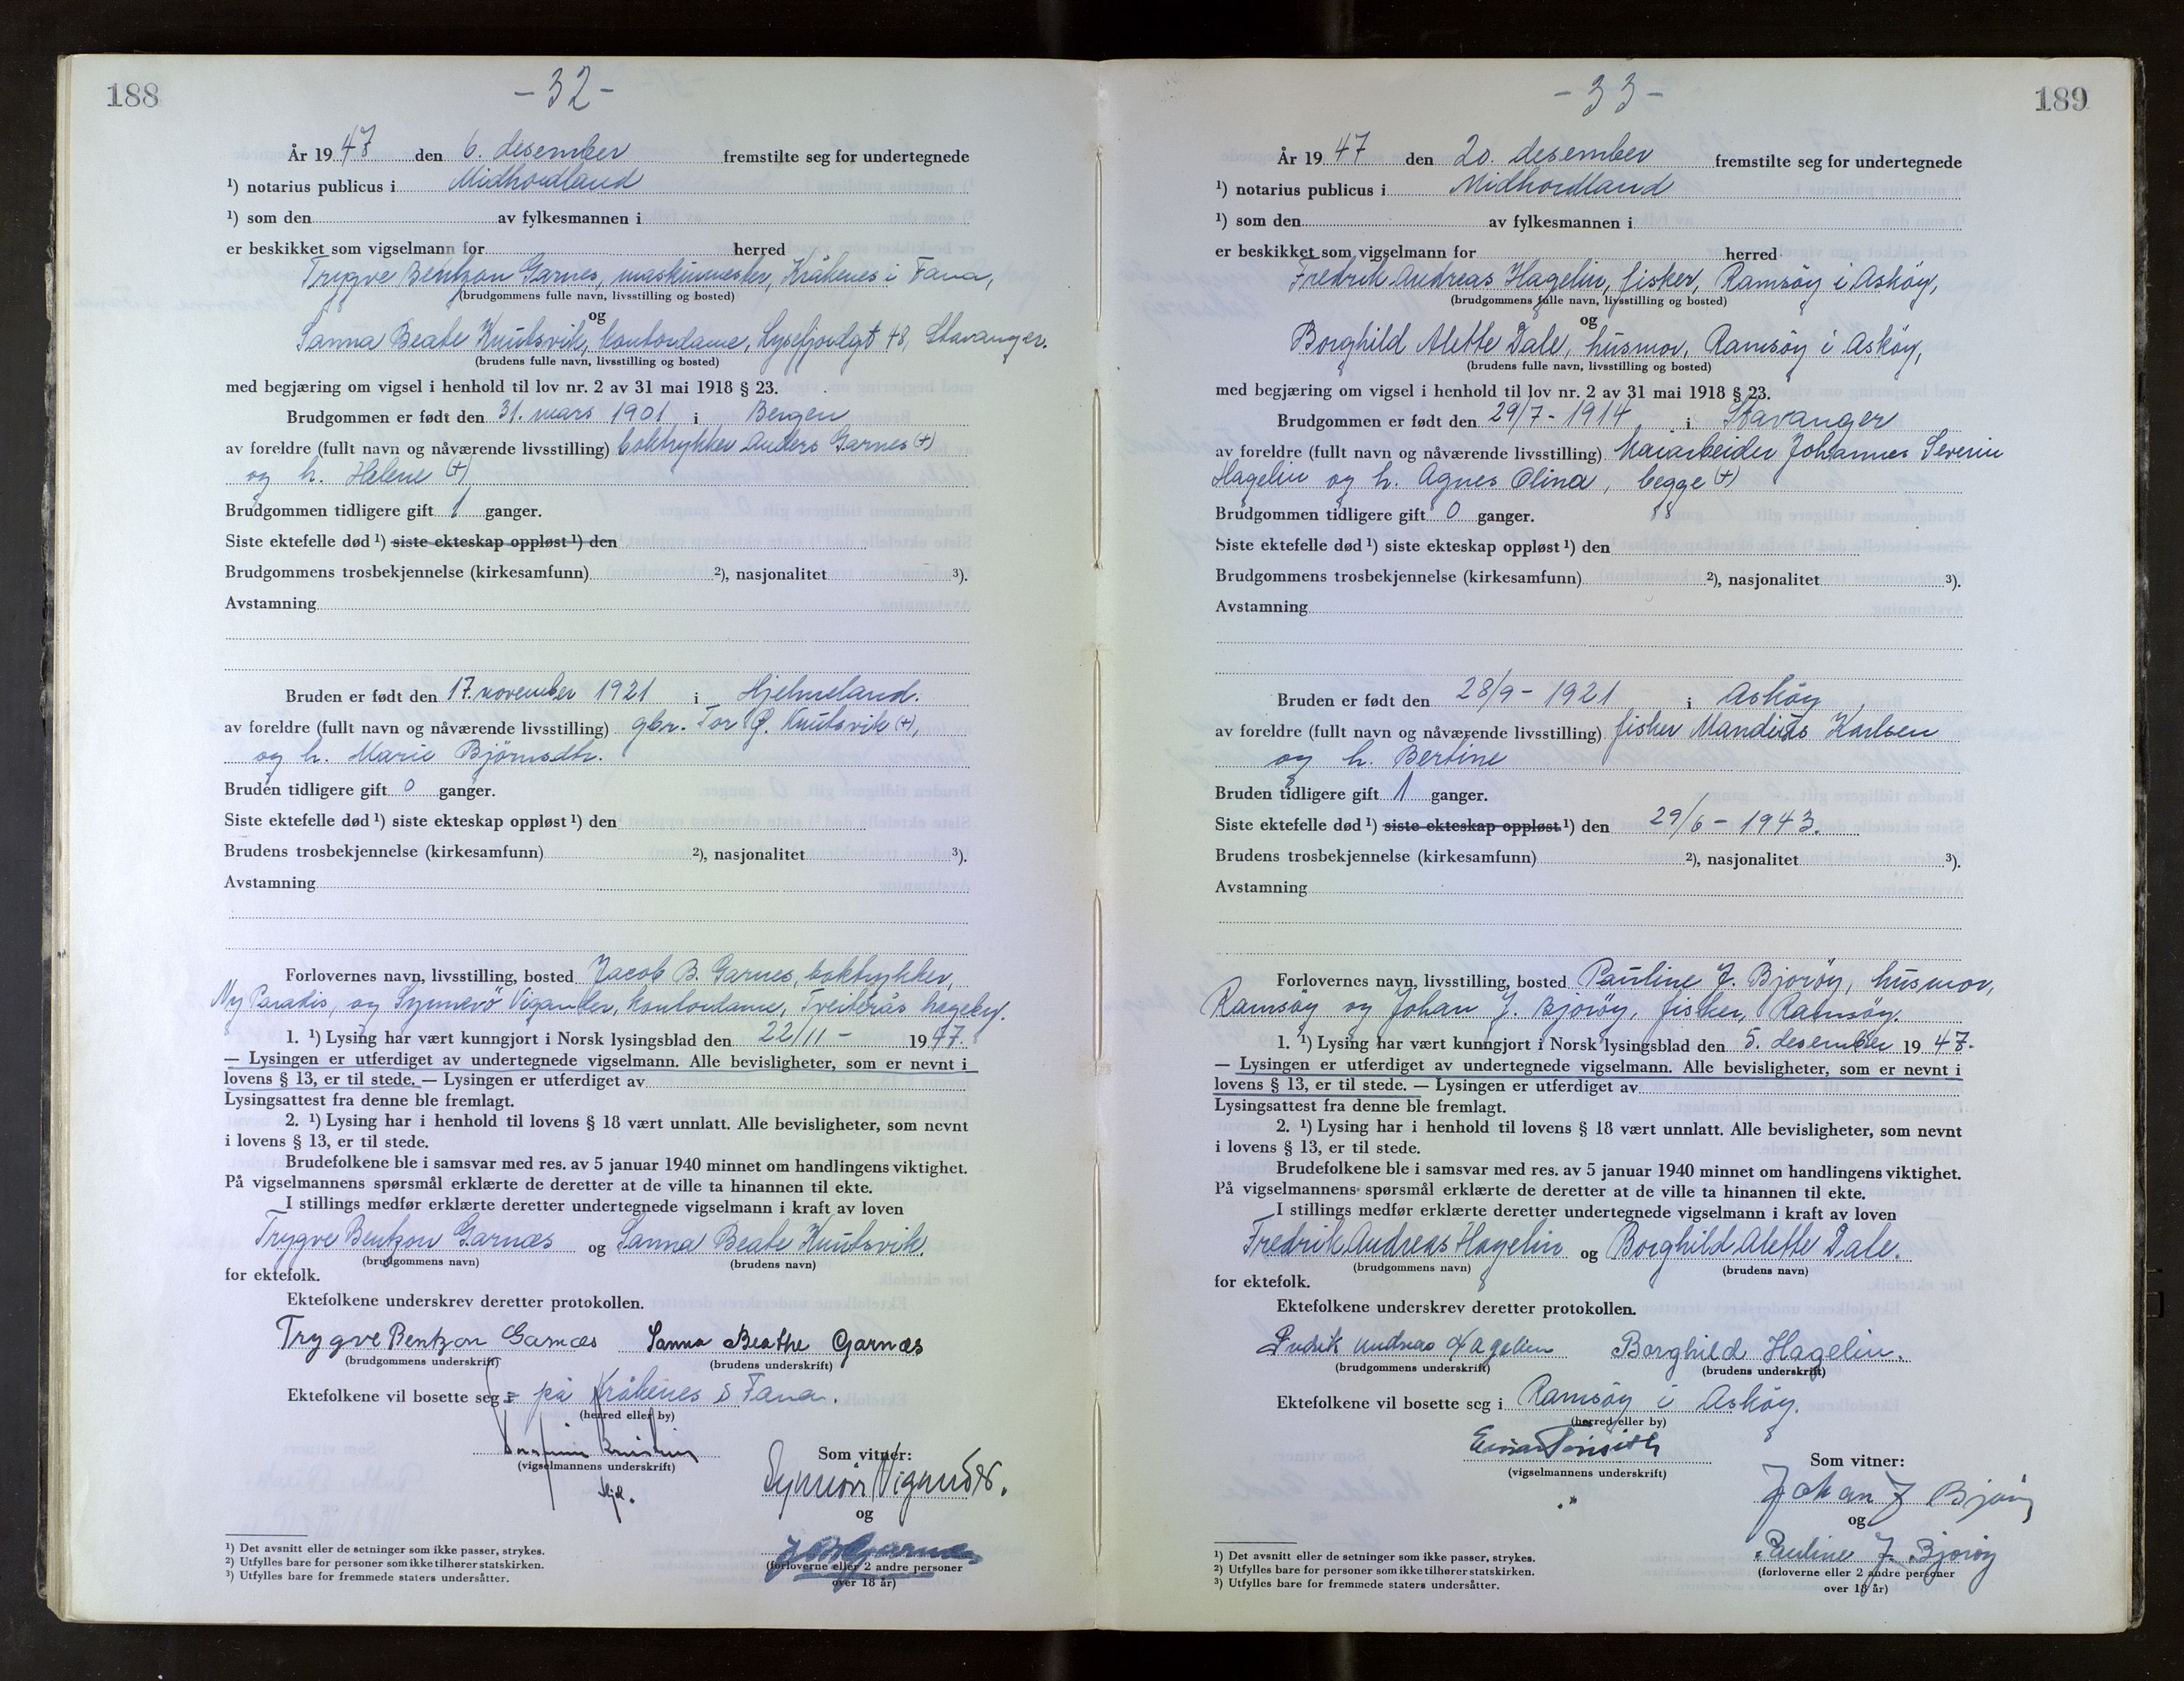 188
- 32 -
År 19 47 den 6. desember fremstilte seg for undertegnede
¹) notarius publicus i Midhordland
¹) som den av fylkesmannen i
er beskikket som vigselmann for herred
Trygve Bentzon Garnes, maskinmester, Kråkenes i Fana,
(brudgommens fulle navn, livsstilling og bosted)
og
Sanna Beate Knutsvik, kontordame, Lysefjordgt 48, Stavanger.
(brudens fulle navn, livsstilling og bosted)
med begjæring om vigsel i henhold til lov nr. 2 av 31 mai 1918 § 23.
Brudgommen er født den 31. mars 1901 i Bergen
av foreldre (fullt navn og nåværende livsstilling) boktrykker Anders Garnes (+)
og h. Helene (+)
Brudgommen tidligere gift 1 ganger.
Siste ektefelle død ¹) siste ekteskap oppløst ¹) den
Brudgommens trosbekjennelse (kirkesamfunn) ²), nasjonalitet ³).
Avstamning
Bruden er født den 17. november 1921 i Hjelmeland.
av foreldre (fullt navn og nåværende livsstilling) gbr. Tor G. Knutsvik (+),
og h. Marie Bjørnsdtr.
Bruden tidligere gift 0 ganger.
Siste ektefelle død ¹) siste ekteskap oppløst ¹) den
Brudens trosbekjennelse (kirkesamfunn) ²), nasjonalitet ³).
Avstamning
Forlovernes navn, livsstilling, bosted Jacob B. Garnes, boktrykker,
Ny Paradis, og Synnevö Vigander, kontordame, Tveiterås hageby.
1. ¹) Lysing har vært kunngjort i Norsk lysingsblad den 22/11 - 1947.
— Lysingen er utferdiget av undertegnede vigselmann. Alle bevisligheter, som er nevnt i
lovens § 13, er til stede. — Lysingen er utferdiget av
Lysingsattest fra denne ble fremlagt.
2. ¹) Lysing har i henhold til lovens § 18 vært unnlatt. Alle bevisligheter, som nevnt
i lovens § 13, er til stede.
Brudefolkene ble i samsvar med res. av 5 januar 1940 minnet om handlingens viktighet.
På vigselmannens spørsmål erklærte de deretter at de ville ta hinannen til ekte.
I stillings medfør erklærte deretter undertegnede vigselmann i kraft av loven
Trygve Bentzon Garnæs og Sanna Beate Knutsvik.
(brudgommens navn) (brudens navn)
for ektefolk.
Ektefolkene underskrev deretter protokollen.
Trygve Bentzon Garnæs Sanna Beathe Garnæs
(brudgommens underskrift) (brudens underskrift)
Ektefolkene vil bosette seg i på Kråkenes i Fana.
(herred eller by)
(vigselmannens underskrift)
Som vitner:
Synnöve Vigander.
og
J B Garnes
(forloverne eller 2 andre personer
over 18 år)
¹) Det avsnitt eller de setninger som ikke passer, strykes.
²) Utfylles bare for personer som ikke tilhører statskirken.
³) Utfylles bare for fremmede staters undersåtter.
189
- 33 -
År 19 47 den 20. desember fremstilte seg for undertegnede
¹) notarius publicus i Midhordland
¹) som den av fylkesmannen i
er beskikket som vigselmann for herred
Fredrik Andreas Hagelin, fisker, Ramsöy i Asköy,
(brudgommens fulle navn, livsstilling og bosted)
og
Borghild Alette Dale, husmor, Ramsöy i Asköy,
(brudens fulle navn, livsstilling og bosted)
med begjæring om vigsel i henhold til lov nr. 2 av 31 mai 1918 § 23.
Brudgommen er født den 29/7 - 1914 i Stavanger
av foreldre (fullt navn og nåværende livsstilling) Murarbeider Johannes Severin
Hagelin og h. Agnes Olina, begge (+)
Brudgommen tidligere gift 0 ganger.
Siste ektefelle død ¹) siste ekteskap oppløst ¹) den
Brudgommens trosbekjennelse (kirkesamfunn) ²), nasjonalitet ³).
Avstamning
Bruden er født den 28/9 - 1921 i Asköy
av foreldre (fullt navn og nåværende livsstilling) fisker Mandius Karlsen
og h. Bertine
Bruden tidligere gift 1 ganger.
Siste ektefelle død ¹) siste ekteskap oppløst ¹) den 29/6 - 1943.
Brudens trosbekjennelse (kirkesamfunn) ²), nasjonalitet ³).
Avstamning
Forlovernes navn, livsstilling, bosted Pauline J. Bjoröy, husmor,
Ramsöy og Johan J. Bjoröy, fisker, Ramsöy.
1. ¹) Lysing har vært kunngjort i Norsk lysingsblad den 5. desember 19 47.
— Lysingen er utferdiget av undertegnede vigselmann. Alle bevisligheter, som er nevnt i
lovens § 13, er til stede. — Lysingen er utferdiget av
Lysingsattest fra denne ble fremlagt.
2. ¹) Lysing har i henhold til lovens § 18 vært unnlatt. Alle bevisligheter, som nevnt
i lovens § 13, er til stede.
Brudefolkene ble i samsvar med res. av 5 januar 1940 minnet om handlingens viktighet.
På vigselmannens spørsmål erklærte de deretter at de ville ta hinannen til ekte.
I stillings medfør erklærte deretter undertegnede vigselmann i kraft av loven
Fredrik Andreas Hagelin og Borghild Alette Dale.
(brudgommens navn) (brudens navn)
for ektefolk.
Ektefolkene underskrev deretter protokollen.
Fredrik Andreas Hagelin Borghild Hagelin.
(brudgommens underskrift) (brudens underskrift)
Ektefolkene vil bosette seg i Ramsöy i Asköy.
(herred eller by)
(vigselmannens underskrift)
Som vitner:
Johan J Bjoröy
og
Pauline J. Bjoröy
(forloverne eller 2 andre personer
over 18 år)
¹) Det avsnitt eller de setninger som ikke passer, strykes.
²) Utfylles bare for personer som ikke tilhører statskirken.
³) Utfylles bare for fremmede staters undersåtter.